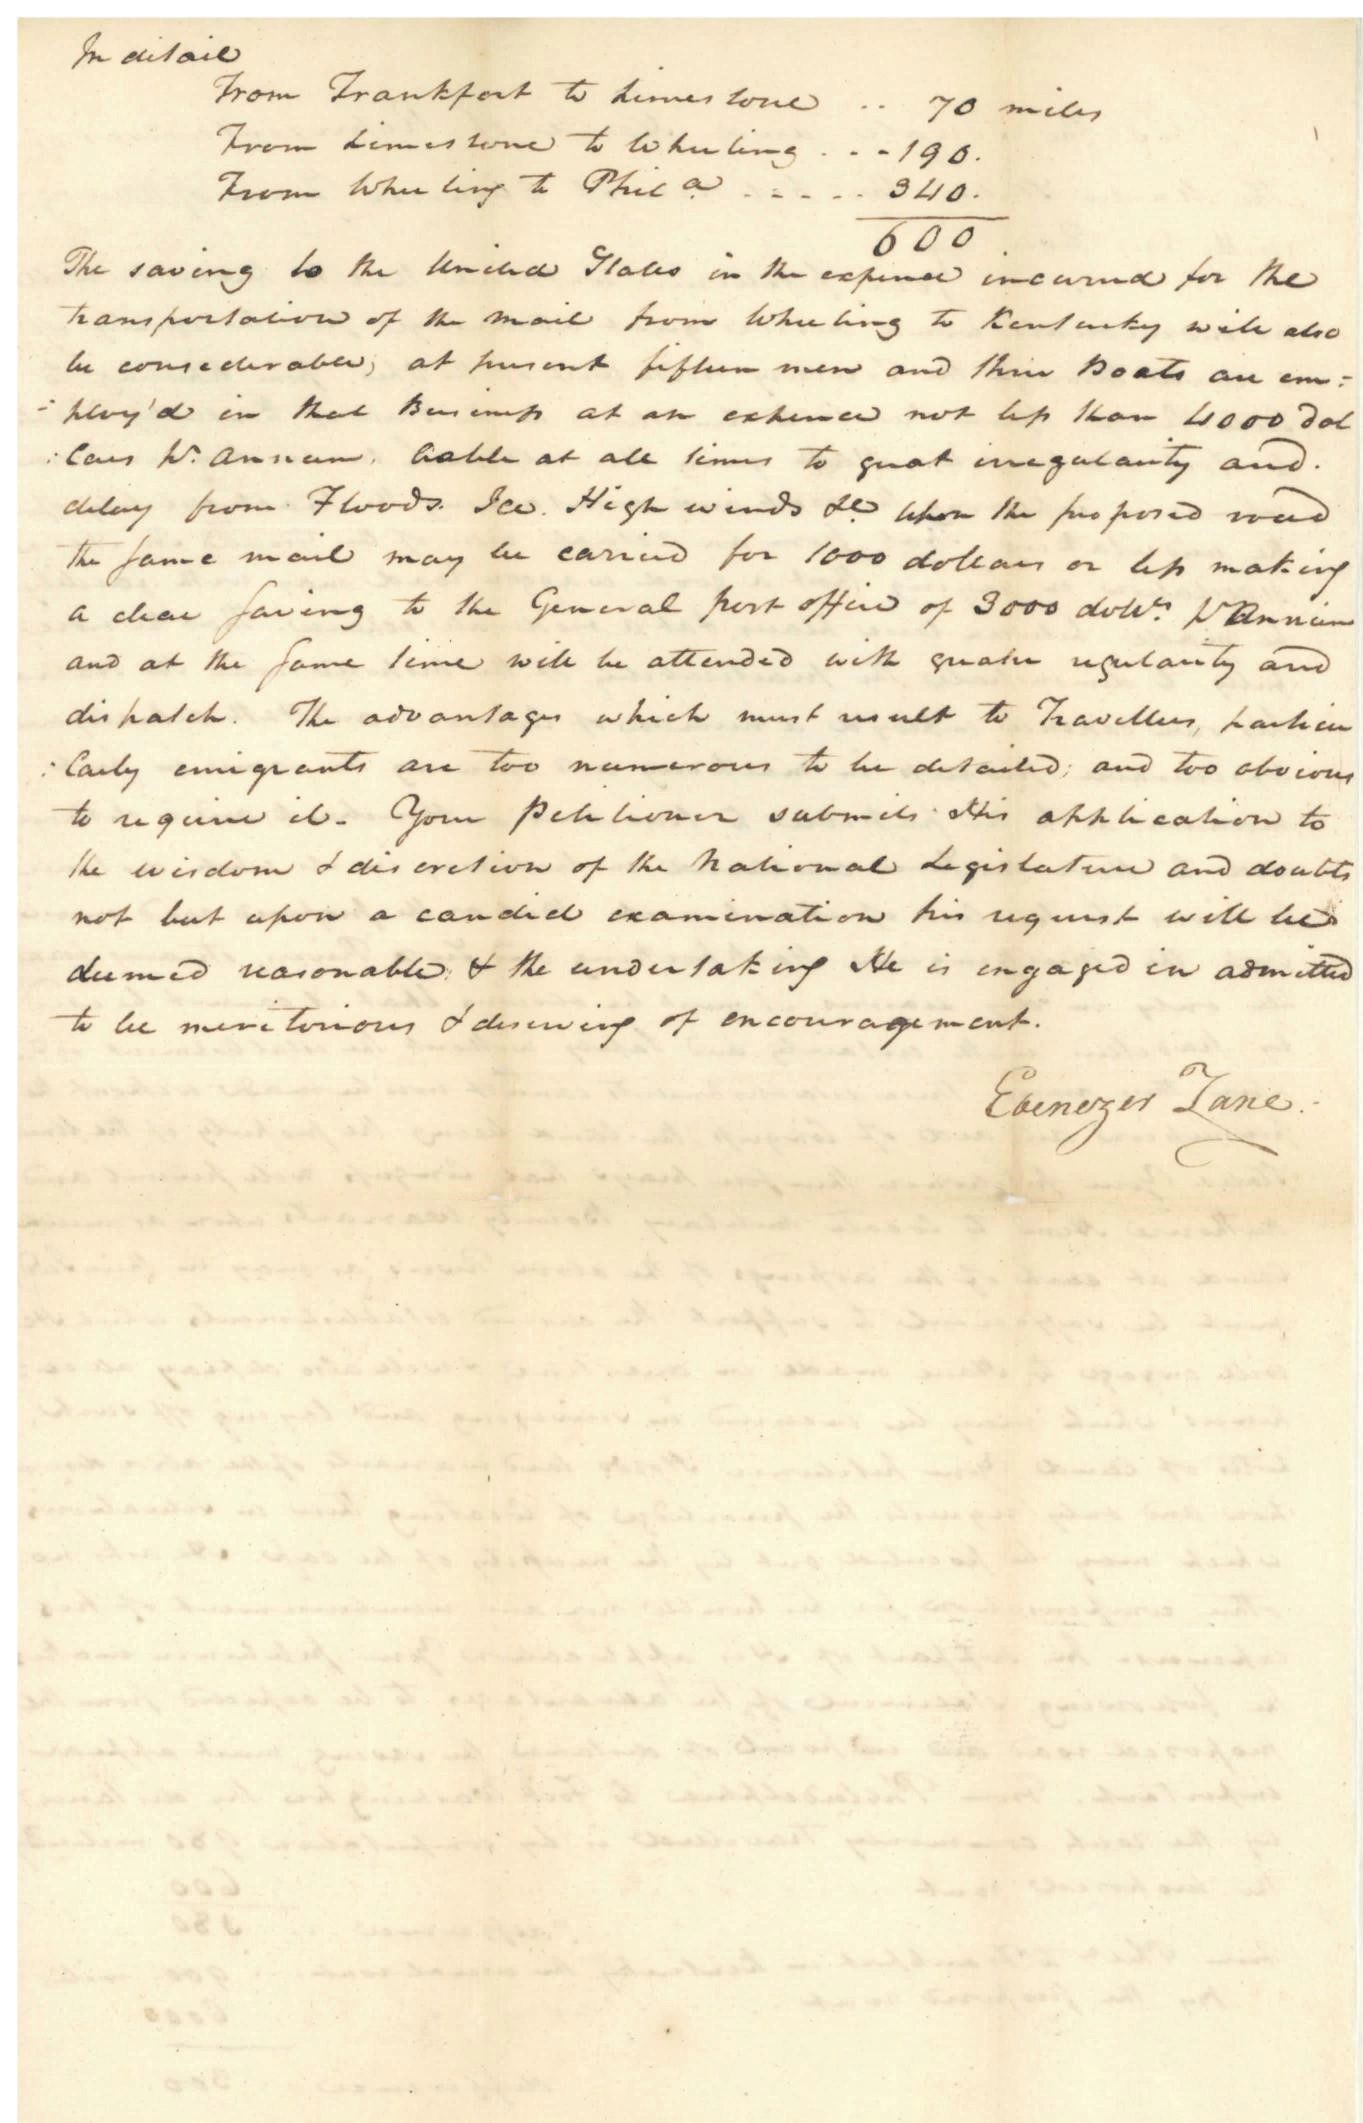 In detail
From Frankfort to Limestone .. 70 miles
From Limestone to Wheeling . . - 190.
From Wheeling to Phila. - - - . . 340.
600
The saving to the United States in the expence incurred for the
transportation of the Mail from Wheeling to Kentucky will also
be considerable; at present fifteen men and three Boats are em=
=ploy'd in that Business at an expence not less than 4000 Dol
:lars Pr. Annum. liable at all times to great irregularity and.
delay from Floods. Ice. High winds &c upon the proposed road
the same mail may be carried for 1000 dollars or less making
a clear saving to the General post office of 3000 dollrs. Pr Annum
and at the same time will be attended with greater regularity and
dispatch. The advantages which must result to Travellers, particu
:larly emigrants are too numerous to be detailed; and too obvious
to require it. Your Petitioner submits His application to
the wisdom & discretion of the National Legislature and doubts
not but upon a candid examination his request will be
deemed reasonable & the undertaking He is engaged in admitted
to be meritorious & deserving of encouragement.
Ebenezer Zane.